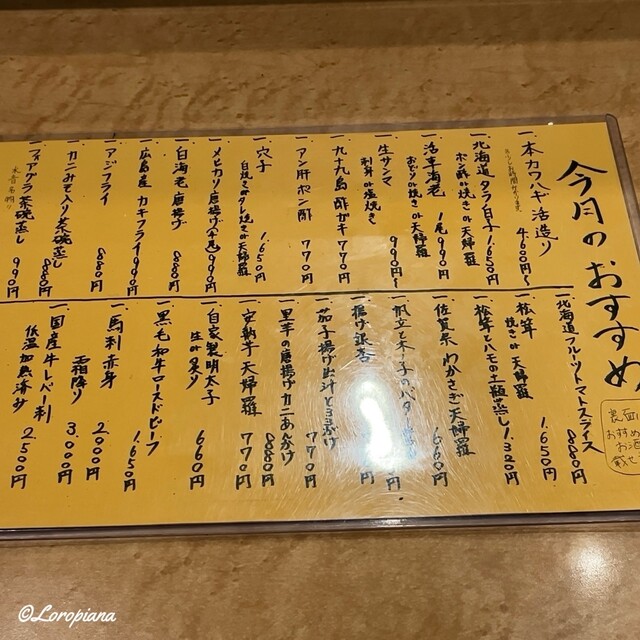 今月のおすすめ
一、本カワハギ活造り 4.600円〜
一、北海道タラ白子 1.650円
ポン酢or焼きor天婦羅
一、活車海老 1尾990円
おどりor焼きor天婦羅
一、生サンマ 990円〜
刺身or塩焼き
一、九十九島酢ガキ 770円
一、アン肝ポン酢 770円
一、穴子 1.650円
白焼きorタレ焼きor天婦羅
一、メヒカリ唐揚げ 990円
一、白海老唐揚げ 880円
一、広島産カキフライ 990円
一、アジフライ 880円
一、カニみそ入り茶碗蒸し 880円
一、フォアグラ茶碗蒸し 990円
一、北海道フルーツトマトスライス 880円
一、松茸 1.650円
焼きor天婦羅
一、松茸とハモの土瓶蒸し 1.320円
一、佐賀県わかさぎ天婦羅 660円
一、帆立と木ノ子のバター
一、揚げ銀杏
一、茄子揚げ出汁とろろがけ 770円
一、里芋の唐揚げカニあんかけ 880円
一、安納芋天婦羅 770円
一、自家製明太子 660円
生or炙り
一、黒毛和牛ローストビーフ 1.650円
一、馬刺赤身 2000円
霜降り 3.000円
一、国産牛レバー刺 2.500円
低温加熱済
裏面に
おすすめ
お酒
載せ
©Loropiana